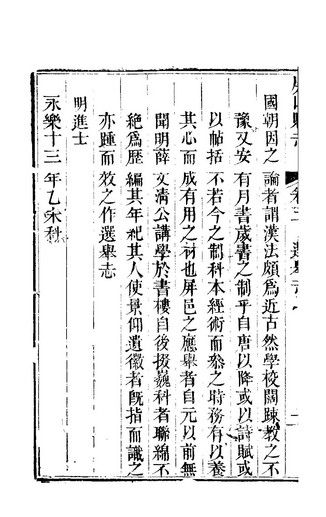 國朝因之論者謂漢法頗爲近古然學校闊踈教之不
豫又安有月書歲書之制乎自唐以降或以詩賦或
以帖括不若今之制科本經術而叅之時務有以養
其心而成有用之材也屏邑之應舉者自元以前無
聞明薛文淸公講學於書樓自後掇巍科者聯緜不
絶爲歷編其年祀其人使景仰遺徽者旣指而識之
亦踵而效之作選舉志
明進士
永樂十三年乙未科